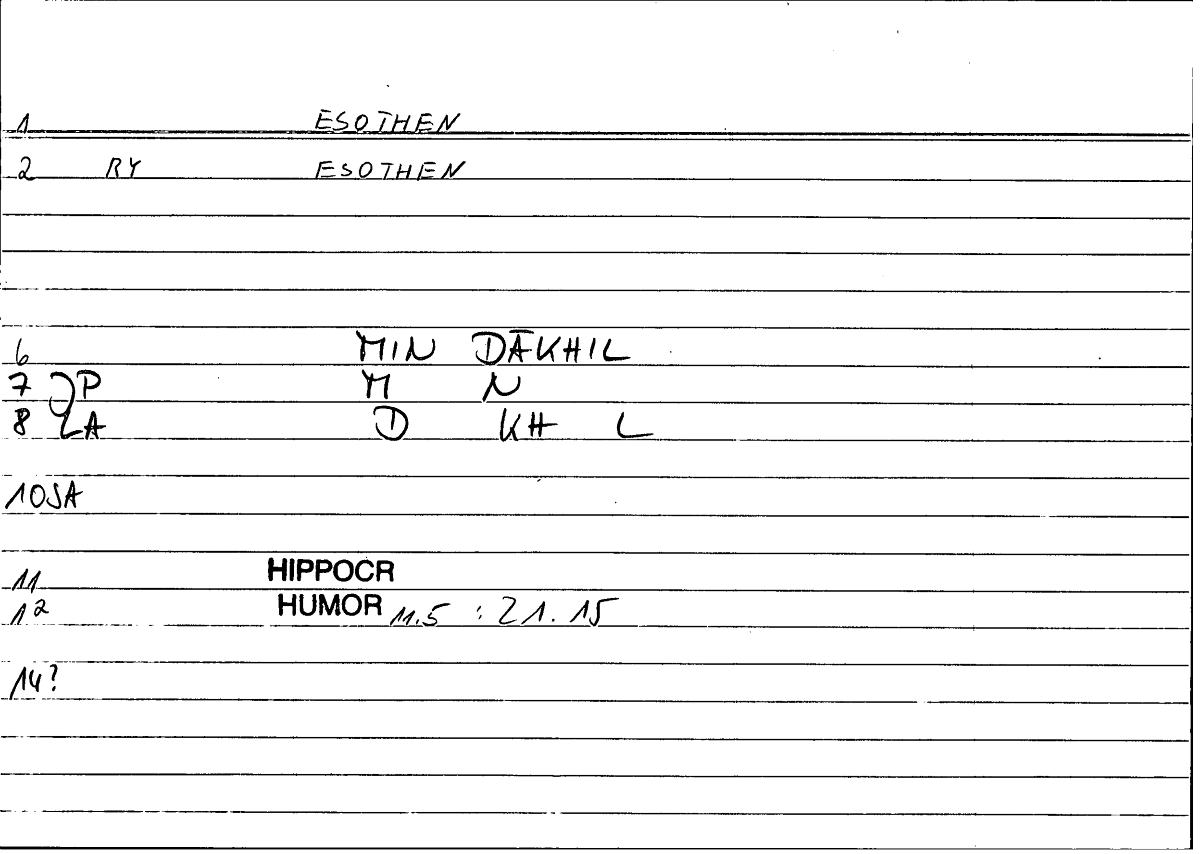 1 ESOTHEN
2 RY ESOTHEN
6 MIN DĀKHIL
7 P M N
8 LA D KH L
10 JA
11 HIPPOCR
12 HUMOR 11.5 : 21.15
14?